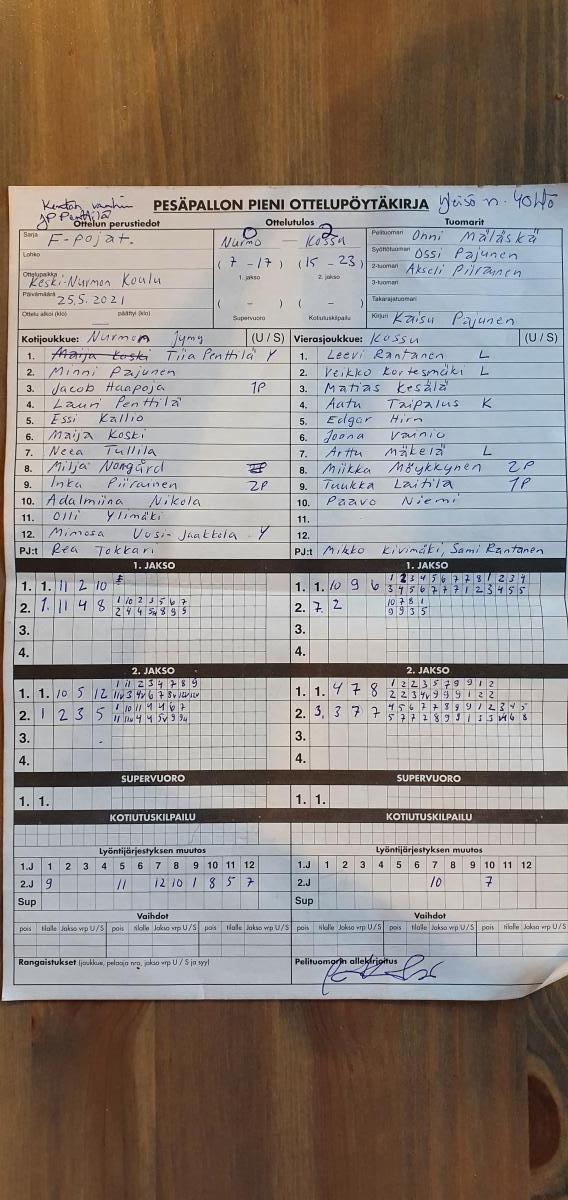 Kentän vanhin
JP Penttilä
PESÄPALLON PIENI OTTELUPÖYTÄKIRJA
Yleisö n. 40 hlö
Ottelun perustiedot
Ottelutulos
Tuomarit
Sarja F-pojat.
Lohko
Ottelupaikka Keski-Nurmon Koulu
Päivämäärä 25.5.2021
Ottelu alkoi (klo) päättyi (klo)
0 2
Nurmo — Kossu
( 7 - 17 ) ( 15 - 23 )
1. jakso 2. jakso
( - ) ( - )
Supervuoro Kotiutuskilpailu
Pelituomari Onni Mäläskä
Syöttötuomari Ossi Pajunen
2-tuomari Akseli Piirainen
3-tuomari
Takarajatuomari
Kirjuri Kaisu Pajunen
Kotijoukkue: Nurmon Jymy (U / S)
1. Maija Koski Tiia Penttilä Y
2. Minni Pajunen
3. Jacob Haapoja 1P
4. Lauri Penttilä
5. Essi Kallio
6. Maija Koski
7. Neea Tullila
8. Milja Nongård
9. Inka Piirainen 2P
10. Adalmiina Nikola
11. Olli Ylimäki
12. Mimosa Uusi-Jaakkola Y
PJ:t Rea Tokkari
Vierasjoukkue: Kossu (U / S)
1. Leevi Rantanen L
2. Veikko Kortesmäki L
3. Matias Kesälä
4. Aatu Taipalus K
5. Edgar Hirn
6. Joona Vainio
7. Arttu Mäkelä L
8. Miikka Möykkynen 2P
9. Tuukka Laitila 1P
10. Paavo Niemi
11.
12.
PJ:t Mikko Kivimäki, Sami Rantanen
1. JAKSO
1. 1. 11 2 10
2. 1. 11 4 8 1 10 2 3 5 6 7
3.
4.
1. JAKSO
1. 1. 10 9 6 1 2 3 4 5 6 7 7 8 1 2 3 4
3 4 5 6 7 7 7 1 2 3 4 5 5
2. 7 2 10 7 8 1
9 9 3 5
3.
4.
2. JAKSO
1. 1. 10 5 12 1 11 2 3 4 7 8 9
2. 1 2 3 5 1 10 11 4 4 6 7
3.
4.
2. JAKSO
1. 1. 4 7 8 1 2 2 3 5 7 9 9 1 2
2. 3. 3 7 7 4 5 6 7 7 8 9 9 1 2 3 4 5
3.
4.
SUPERVUORO
1. 1.
SUPERVUORO
1. 1.
KOTIUTUSKILPAILU
KOTIUTUSKILPAILU
Lyöntijärjestyksen muutos
1.J 1 2 3 4 5 6 7 8 9 10 11 12
2.J 9 11 12 10 1 8 5 7
Sup
Lyöntijärjestyksen muutos
1.J 1 2 3 4 5 6 7 8 9 10 11 12
2.J 10 7
Sup
Vaihdot
pois tilalle Jakso vrp U / S pois tilalle Jakso vrp U / S pois tilalle Jakso vrp U / S
Vaihdot
pois tilalle Jakso vrp U / S pois tilalle Jakso vrp U / S pois tilalle Jakso vrp U / S
Rangaistukset (joukkue, pelaaja nro, jakso vrp U / S ja syy)
Pelituomarin allekirjoitus